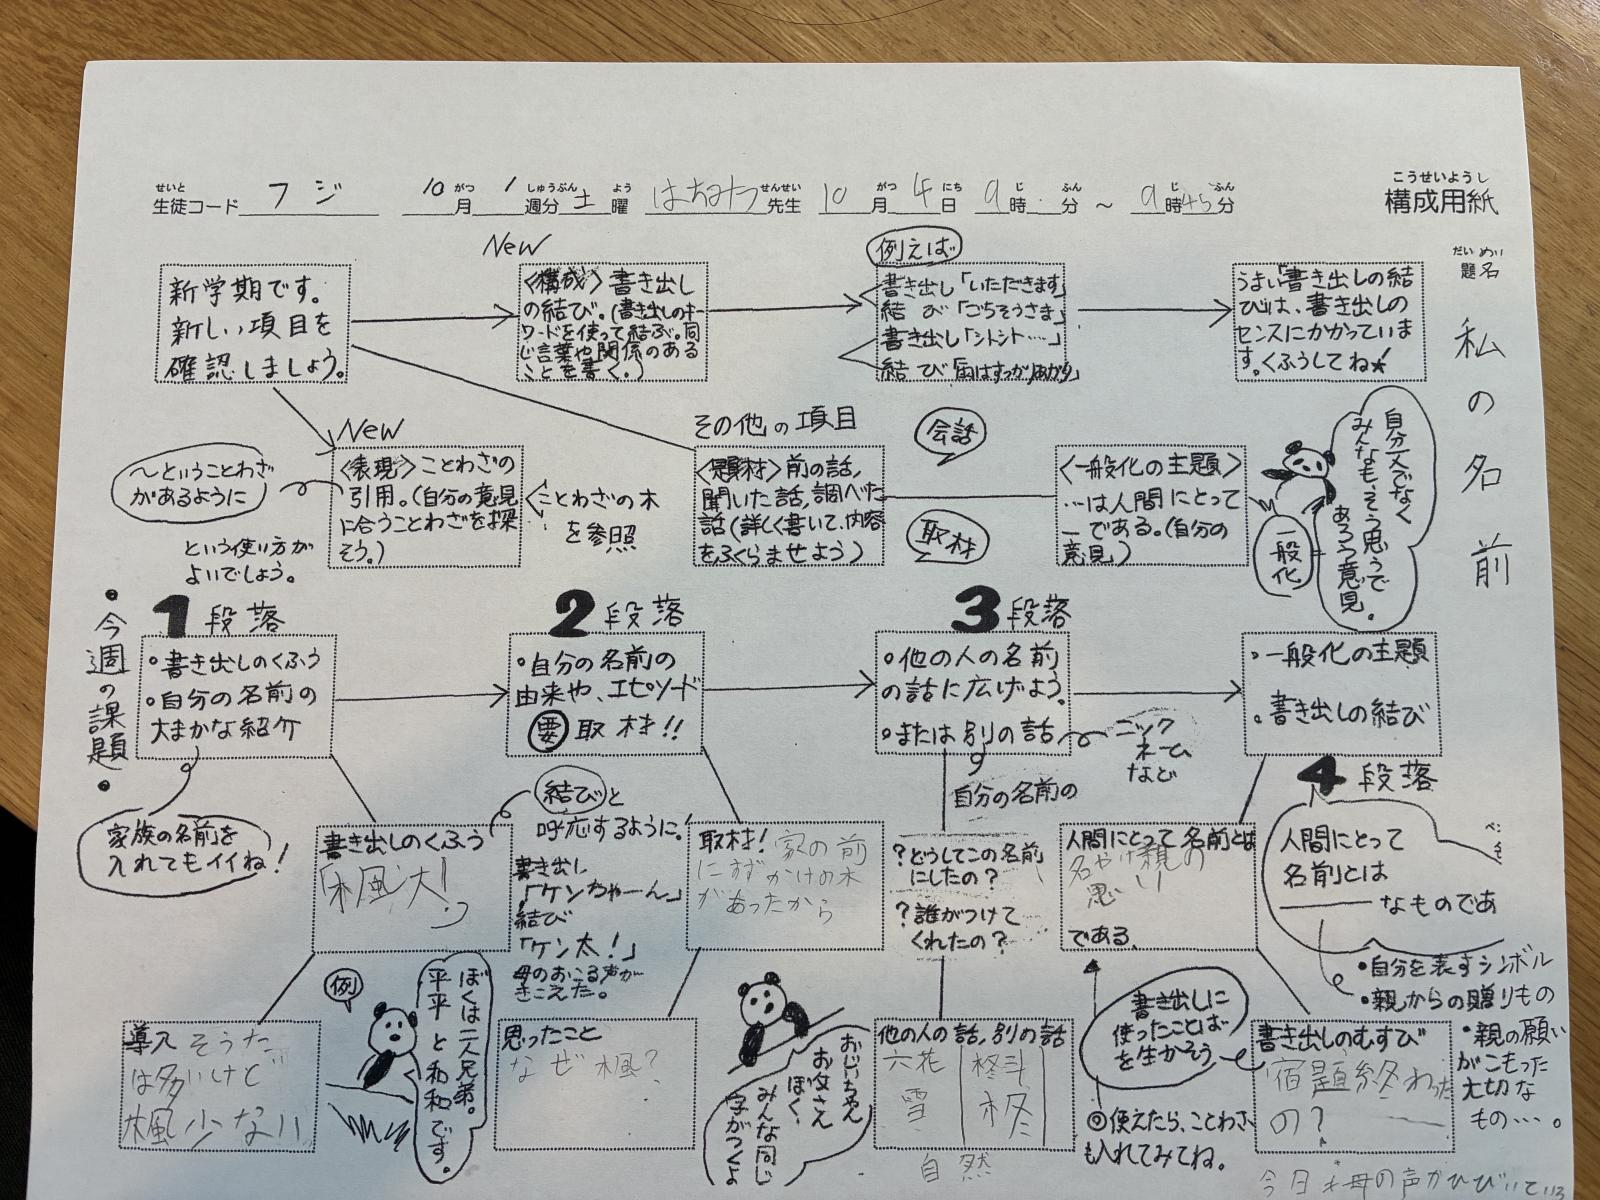 構成用紙
こうせいようし
せいと がつ しゅうぶん よう せんせい がつ にち じ ふん じ ふん
生徒コード フジ 10月 1週分 土曜 はちみつ先生 10月4日 9時 分 ～ 9時45分
だいめい
題名
私の名前
新学期です。
新しい項目を
確認しましょう。
New
〈構成〉書き出し
の結び。(書き出しのキー
ワードを使って結ぶ。同
じ言葉や関係のある
ことを書く。)
例えば
書き出し「いただきます」
結 び「ごちそうさま」
書き出し「シトシト……」
結 び「雨はすっかりあがり」
うまい「書き出しの結
びは、書き出しの
センスにかかっていま
す。くふうしてね★
～ということわざ
があるように
という使い方が
よいでしょう。
New
〈表現〉ことわざの
引用。(自分の意見
に合うことわざを探
そう。)
ことわざの木
を参照
その他の項目
〈題材〉前の話,
聞いた話,調べた
話(詳しく書いて、内容
をふくらませよう)
会話
取材
〈一般化の主題〉
…は人間にとって
ーである。(自分の
意見)
自分だけでなく
みんなも、そう思うで
あろう意見。
一般化
・今週の課題・
1段落
・書き出しのくふう
・自分の名前の
大まかな紹介
2段落
・自分の名前の
由来や、エピソード
要 取材!!
3段落
・他の人の名前
の話に広げよう。
・または別の話
ニック
ネーム
など
自分の名前の
・一般化の主題
・書き出しの結び
4段落
家族の名前を
入れてもイイね!
書き出しのくふう
「楓汰!
結びと
呼応するように!
書き出し
「ケンちゃーん」
結び
「ケン太!」
母のおこる声が
きこえた。
取材! 家の前
にすずかけの木
があったから
?どうしてこの名前
にしたの?
?誰がつけて
くれたの?
人間にとって名前とは
親の
思い
である。
人間にとって
名前とは
なものであ
・自分を表すシンボル
・親からの贈りもの
・親の願い
がこもった
大切な
もの…。
導入 そうた
は多いけど
楓少ない。
例
ぼくは二人兄弟。
平平と和和です。
思ったこと
なぜ楓?
おじいちゃん
お父さん
ぼく、
みんな同じ
字がつくよ
他の人の話,別の話
六花 柊斗
雪 冬
自然
書き出しに
使ったことば
を生かそう。
◎使えたら、ことわざ
も入れてみてね。
書き出しのむすび
「宿題終わった
の?
今日も母の声がひびいている